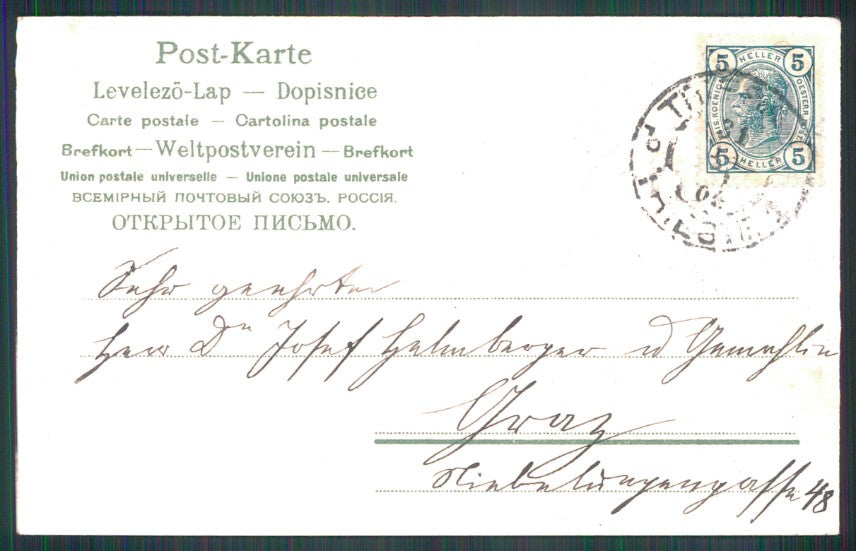 Post-Karte
Levelező-Lap — Dopisnice
Carte postale — Cartolina postale
Brefkort — Weltpostverein — Brefkort
Union postale universelle — Unione postale universale
ВСЕМІРНЫЙ ПОЧТОВЫЙ СОЮЗЪ. РОССІЯ.
ОТКРЫТОЕ ПИСЬМО.
5 HELLER 5
5 HELLER 5
Sehr geehrten
Herr Dr Josef Helmberger u Gemahlin
Graz
Niebelungengasse 48